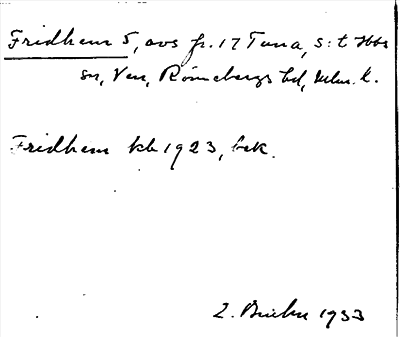 Fridhem 5, avs fr. 17 Tuna, S:t Ibbs
sn, Ven, Rönnebergs hd, Mlm. l.
Fridhem kb 1923, bek.
1933